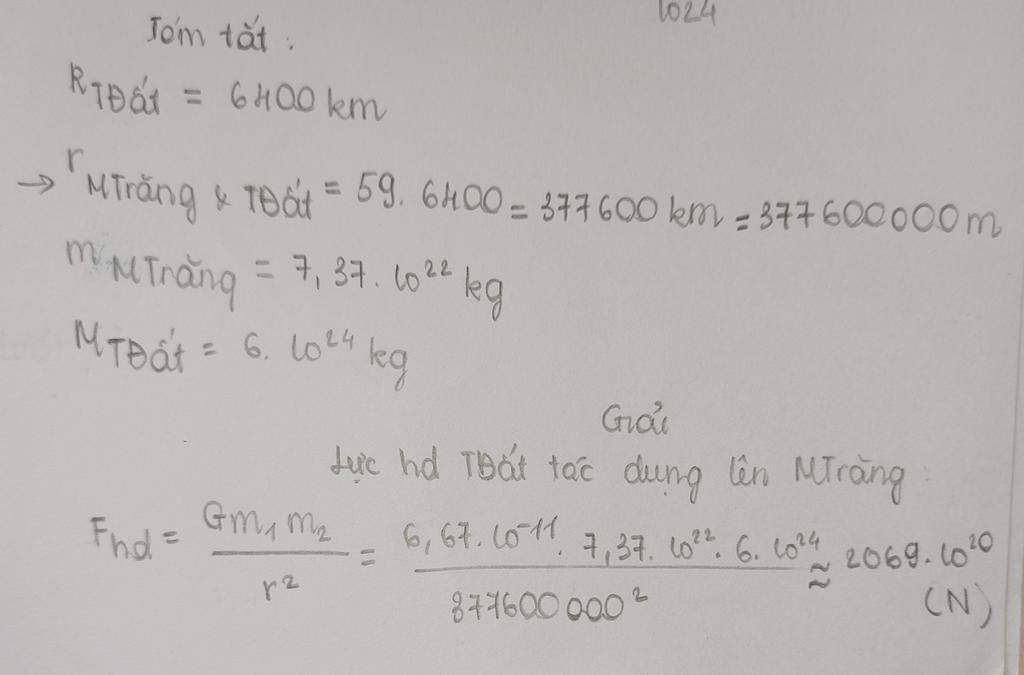 1024
Tóm tắt :
R TĐất = 6400 km
→ r MTrăng & TĐất = 59. 6400 = 377600 km = 377600000 m
m MTrăng = 7,37. 10²² kg
M TĐất = 6. 10²⁴ kg
Giải
Lực hd TĐất tác dụng lên MTrăng :
Fhd = Gm₁m₂ / r² = 6,67. 10⁻¹¹. 7,37. 10²². 6. 10²⁴ / 377600 000² ≈ 2069. 10²⁰
(N)